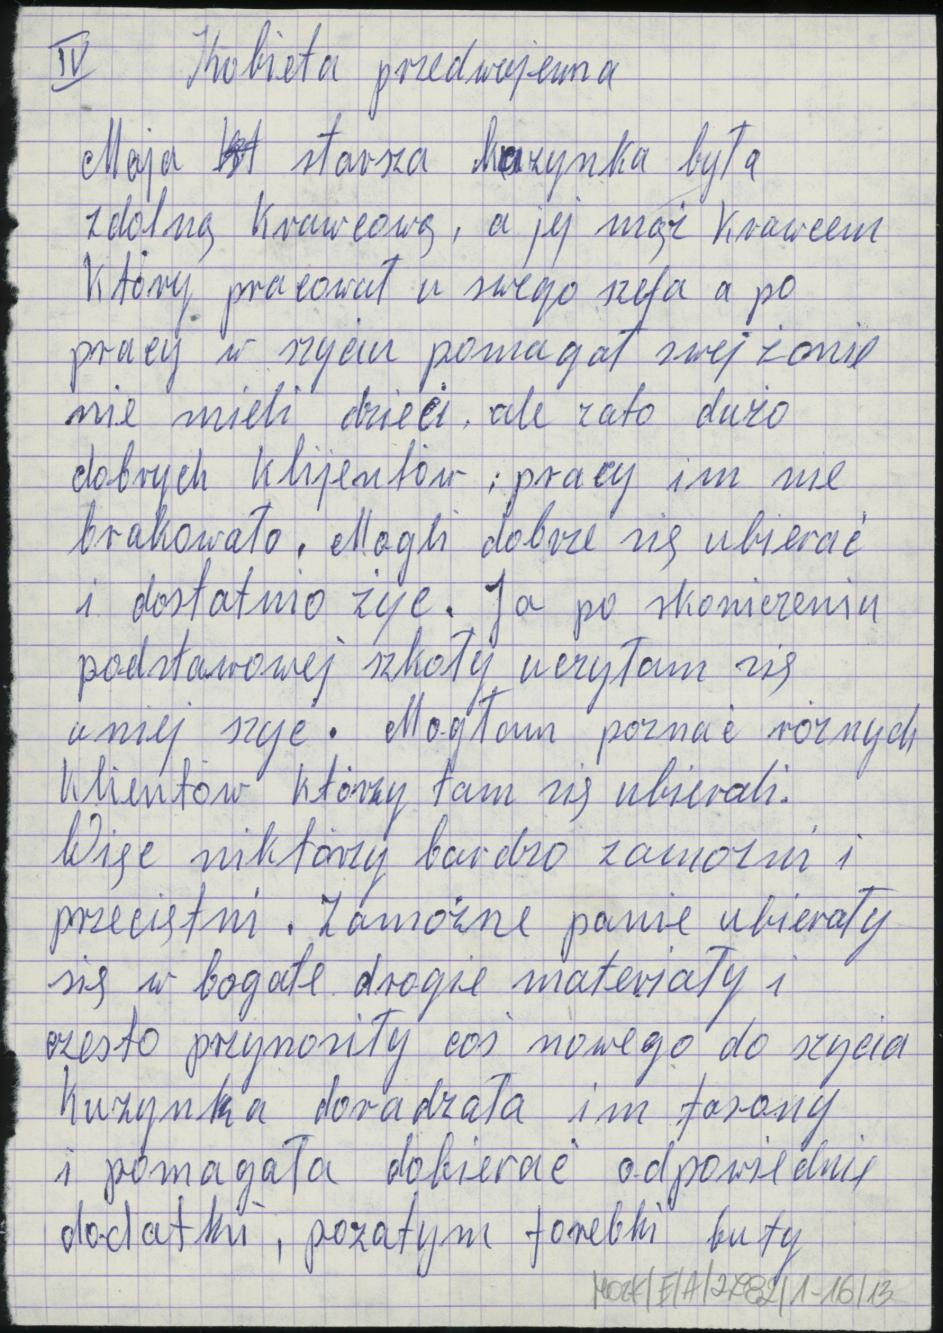 IV Kobieta przedwojenna
Moja starsza kuzynka była
zdolną krawcową, a jej mąż krawcem
który pracował u swego szefa a po
pracy w szyciu pomagał swej żonie
nie mieli dzieci, ale zato dużo
dobrych klijentów; pracy im nie
brakowało. Mogli dobrze się ubierać
i dostatnio żyć. Ja po skonieczeniu
podstawowej szkoły uczyłam się
uniej szyć. Mogłam poznać różnych
klientów którzy tam się ubierali.
Więc niktórzy bardzo zamożni i
przeciętni. Zamożne panie ubierały
się w bogate drogie materjały i
czesto przynosiły coś nowego do szycia
kuzynka doradzała im fasony
i pomagała dobierać odpowiednie
dodatki, pozatym torebki buty
MOZK/E/A/2782/1-16/13